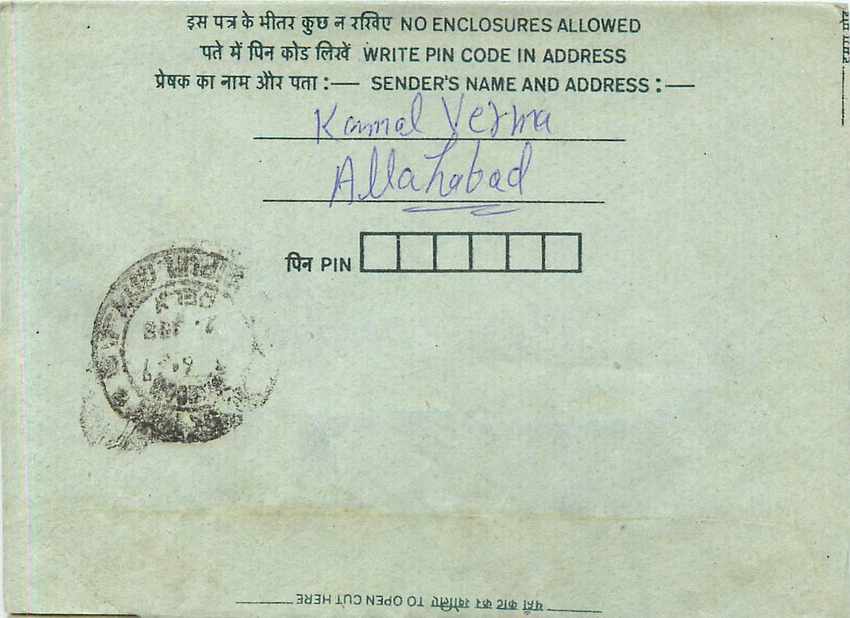 इस पत्र के भीतर कुछ न रखिए NO ENCLOSURES ALLOWED
पते में पिन कोड लिखें WRITE PIN CODE IN ADDRESS
प्रेषक का नाम और पता :— SENDER'S NAME AND ADDRESS :—
Kamal Verma
Allahabad
पिन PIN
DELY
यहाँ काट कर खोलिए TO OPEN CUT HERE